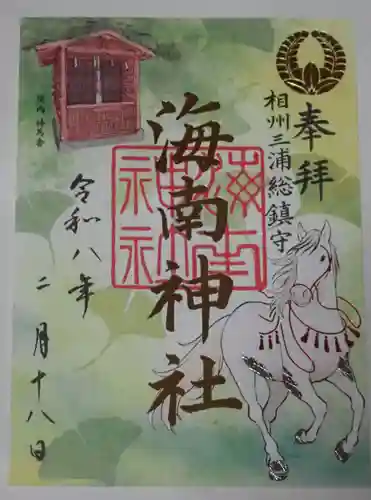 奉拝
相州三浦総鎮守
海南神社
海南神社
令和八年
二月十八日